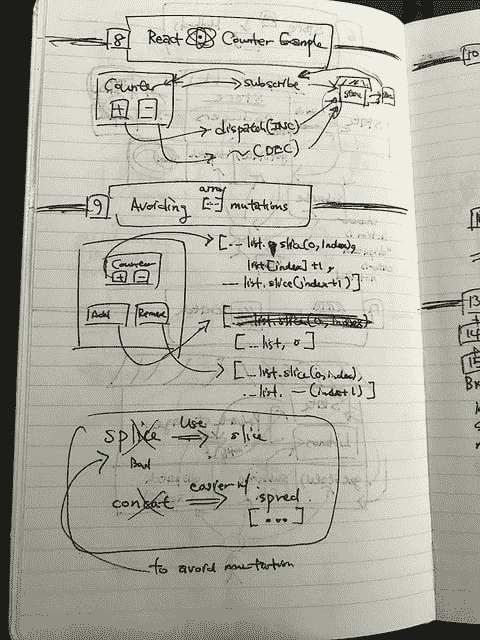 8 React Counter Example
Counter
+ -
subscribe
store
dispatch(INC)
~ (DEC)
9 Avoiding array [--] mutations
Counter
+ -
Add Remove
[... list.slice(0, index),
list[index]+1,
... list.slice(index+1)]
[
... list.slice(0, index)
[... list, 0]
[...list.slice(0, index),
...list. — (index+1)]
splice use slice
Bad
concat easier w/ spred
[...]
to avoid mutation
10
13
14
15